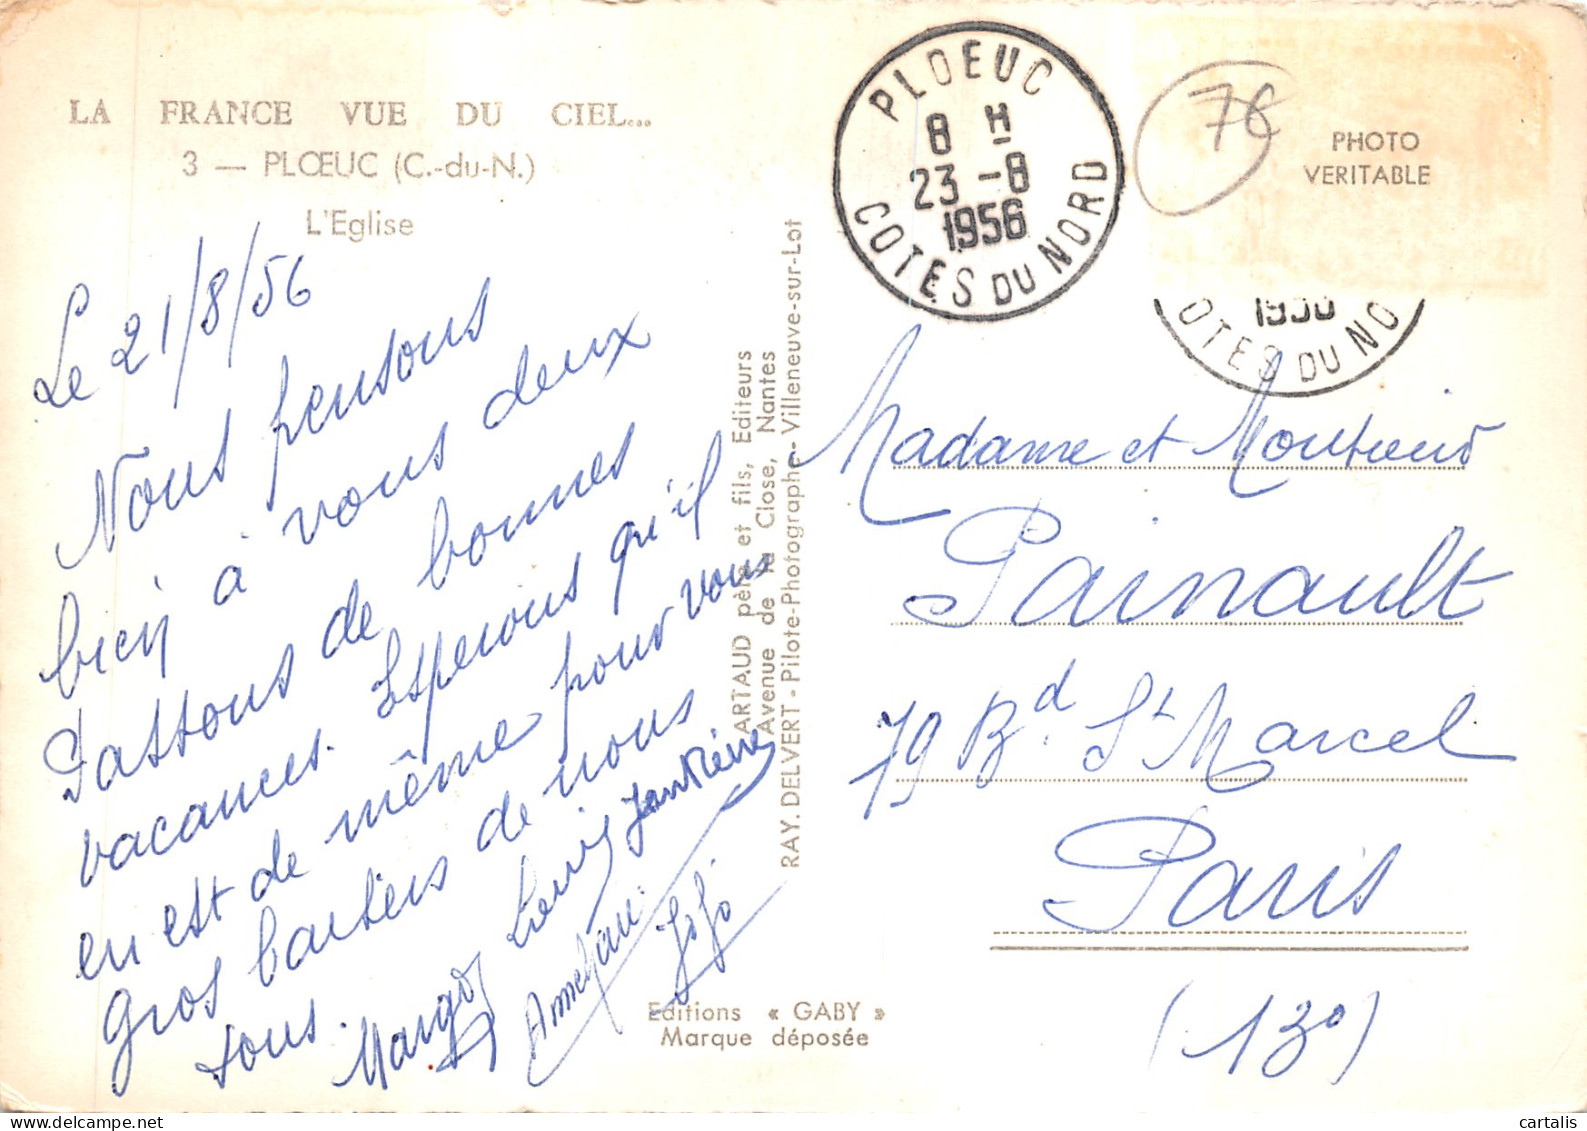 LA FRANCE VUE DU CIEL...
3 — PLŒUC (C.-du-N.)
L'Eglise
Le 21/8/56
Nous pensons
bien à vous deux
Passons de bonnes
vacances. Esperons qu'il
en est de même pour vous
gros baisers de nous
tous.
Margot
Louis
Jean Pierre
Anne Marie
Jojo
ARTAUD père et fils, Editeurs
Avenue de la Close, Nantes
RAY. DELVERT - Pilote-Photographe - Villeneuve-sur-Lot
Editions « GABY »
Marque déposée
PLOEUC
8 H
23 -8
1956
COTES DU NORD
76
PHOTO
VERITABLE
1956
OTES DU NO
Madame et Monsieur
Painault
79 Bd. St Marcel
Paris
(13°)
cartalis
www.delcampe.net